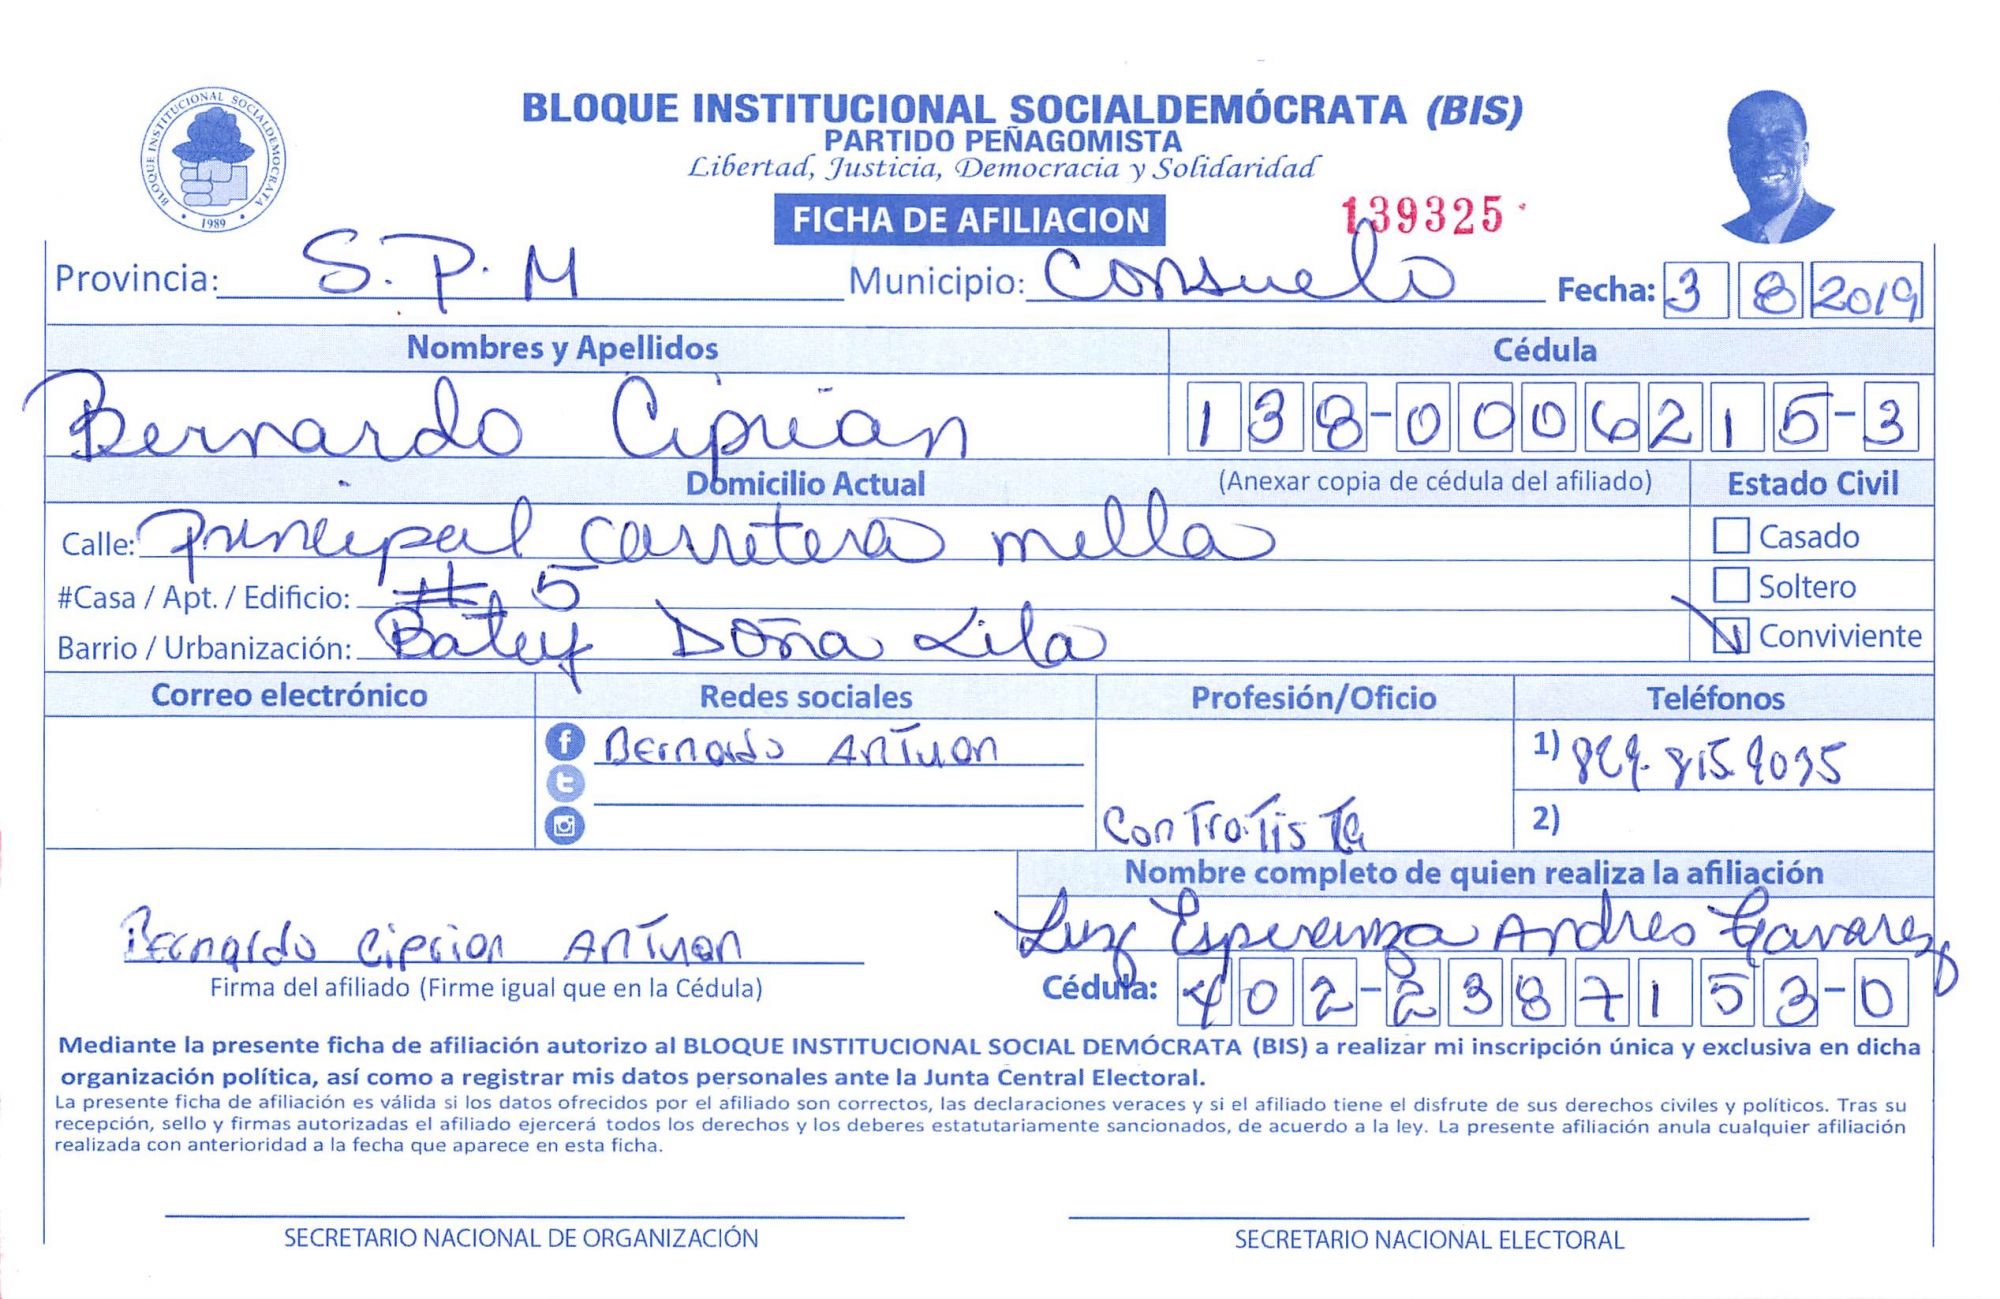 BLOQUE INSTITUCIONAL SOCIALDEMOCRATA
1989
BLOQUE INSTITUCIONAL SOCIALDEMÓCRATA (BIS)
PARTIDO PEÑAGOMISTA
Libertad, Justicia, Democracia y Solidaridad
FICHA DE AFILIACION 139325
Provincia: S.P.M Municipio: Consuelo Fecha: 3 8 2019
Nombres y Apellidos Cédula
Bernardo Ciprián 138-0006215-3
Domicilio Actual (Anexar copia de cédula del afiliado) Estado Civil
Calle: Principal carretera mella Casado
#Casa / Apt. / Edificio: # 5 Soltero
Barrio / Urbanización: Batey Doña Lila Conviviente
Correo electrónico Redes sociales Profesión/Oficio Teléfonos
Bernardo Antuan 1) 829. 815
2)
Contratista
Nombre completo de quien realiza la afiliación
Bernardo Ciprian Antuan Luz Esperanza Andres Tavarez
Firma del afiliado (Firme igual que en la Cédula) Cédula: 402-2387153-0
Mediante la presente ficha de afiliación autorizo al BLOQUE INSTITUCIONAL SOCIAL DEMÓCRATA (BIS) a realizar mi inscripción única y exclusiva en dicha
organización política, así como a registrar mis datos personales ante la Junta Central Electoral.
La presente ficha de afiliación es válida si los datos ofrecidos por el afiliado son correctos, las declaraciones veraces y si el afiliado tiene el disfrute de sus derechos civiles y políticos. Tras su
recepción, sello y firmas autorizadas el afiliado ejercerá todos los derechos y los deberes estatutariamente sancionados, de acuerdo a la ley. La presente afiliación anula cualquier afiliación
realizada con anterioridad a la fecha que aparece en esta ficha.
SECRETARIO NACIONAL DE ORGANIZACIÓN SECRETARIO NACIONAL ELECTORAL